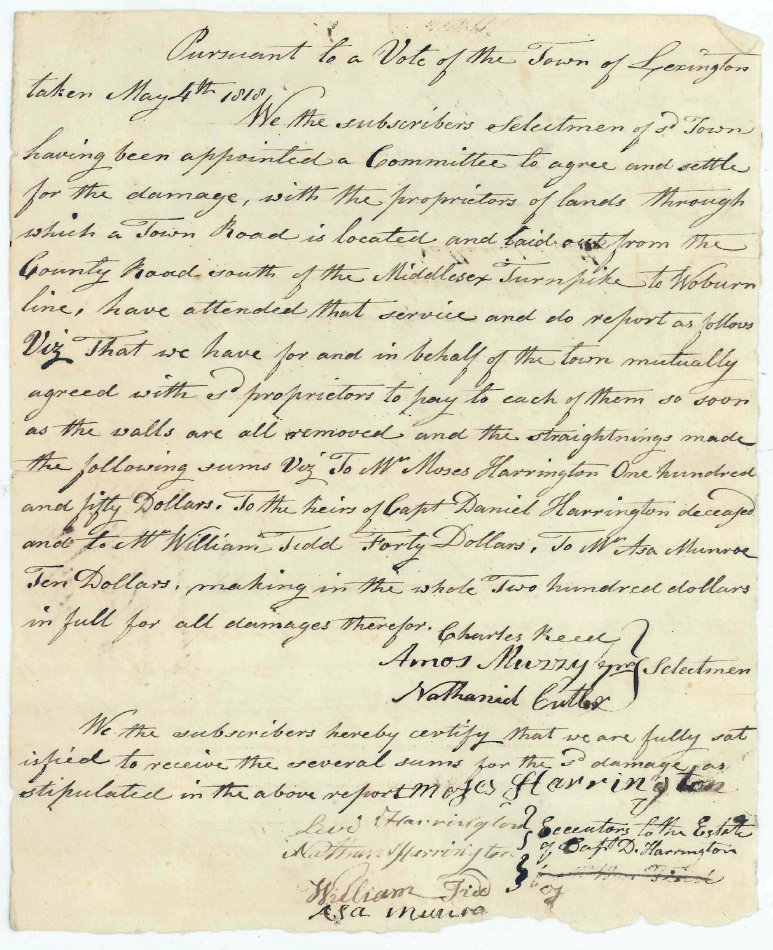 Pursuant to a Vote of the Town of Lexington
taken May 4th 1818
We the subscribers Selectmen of sd Town
having been appointed a Committee to agree and settle
for the damage, with the proprietors of lands through
which a Town Road is located and laid out from the
County Road south of the Middlesex Turnpike to Woburn
line, have attended that service and do report as follows
Viz That we have for and in behalf of the town mutually
agreed with sd proprietors to pay to each of them so soon
as the walls are all removed and the straightnings made
the following sums Viz To Mr Moses Harrington One hundred
and fifty Dollars. To the heirs of Capt Daniel Harrington deceased
and to Mr William Tidd Forty Dollars. To Mr Asa Munroe
Ten Dollars, making in the whole Two hundred dollars
in full for all damages therefor.
Charles Reed
Amos Muzzy Jnr } Selectmen
Nathaniel Cutler
We the subscribers hereby certify that we are fully sat
isfied to receive the several sums for the sd damage as
stipulated in the above report Moses Harrington
Levi Harrington } Executors to the Estate
Nathan Harrington } of Capt D. Harrington
William Tidd
Asa Munro